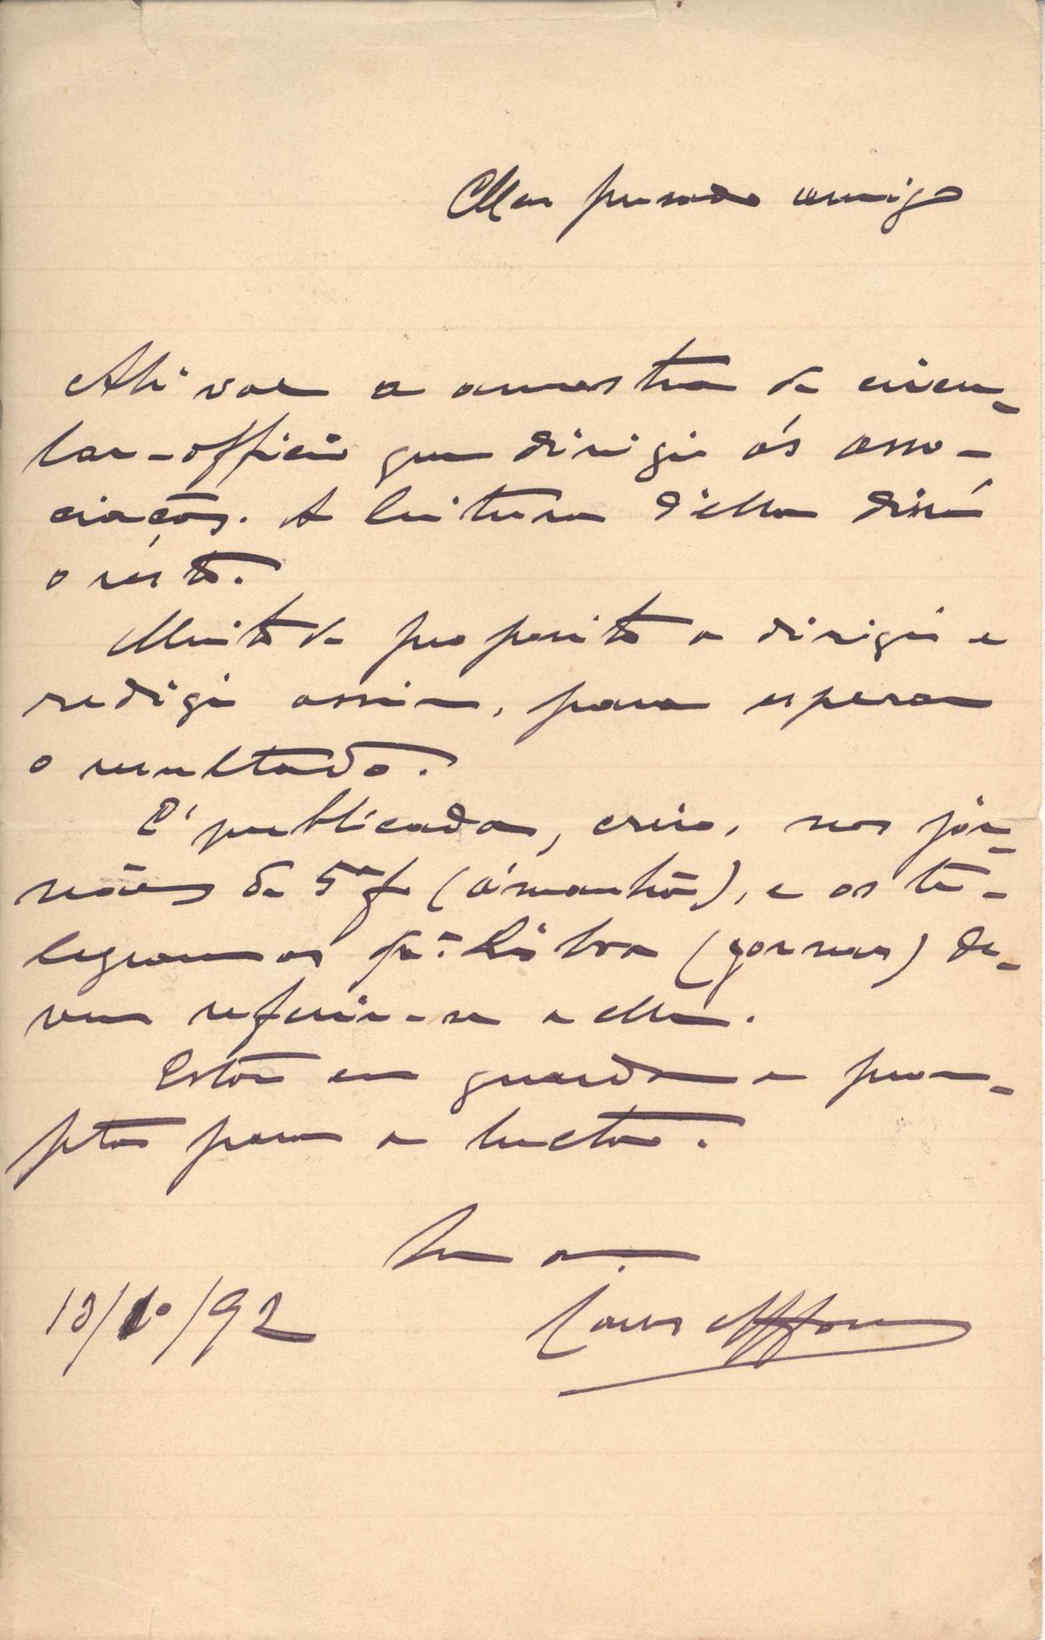 Meu presado amigo
Ahi vae a amostra da circu-
lar-officio que dirigi ás asso-
ciações. A leitura d'ella dirá
o résto.
Muito de proposito a dirigi e
redigi assim, para esperar
o resultado.
É publicada, creio, nos jor-
nães de 5ª fª (ámanhã), e os te-
legrammas pª Lisboa (jornaes) de-
vem referir-se a ella.
Estou em guarda e prom-
pto para a lucta.
Seu am.
13/10/92